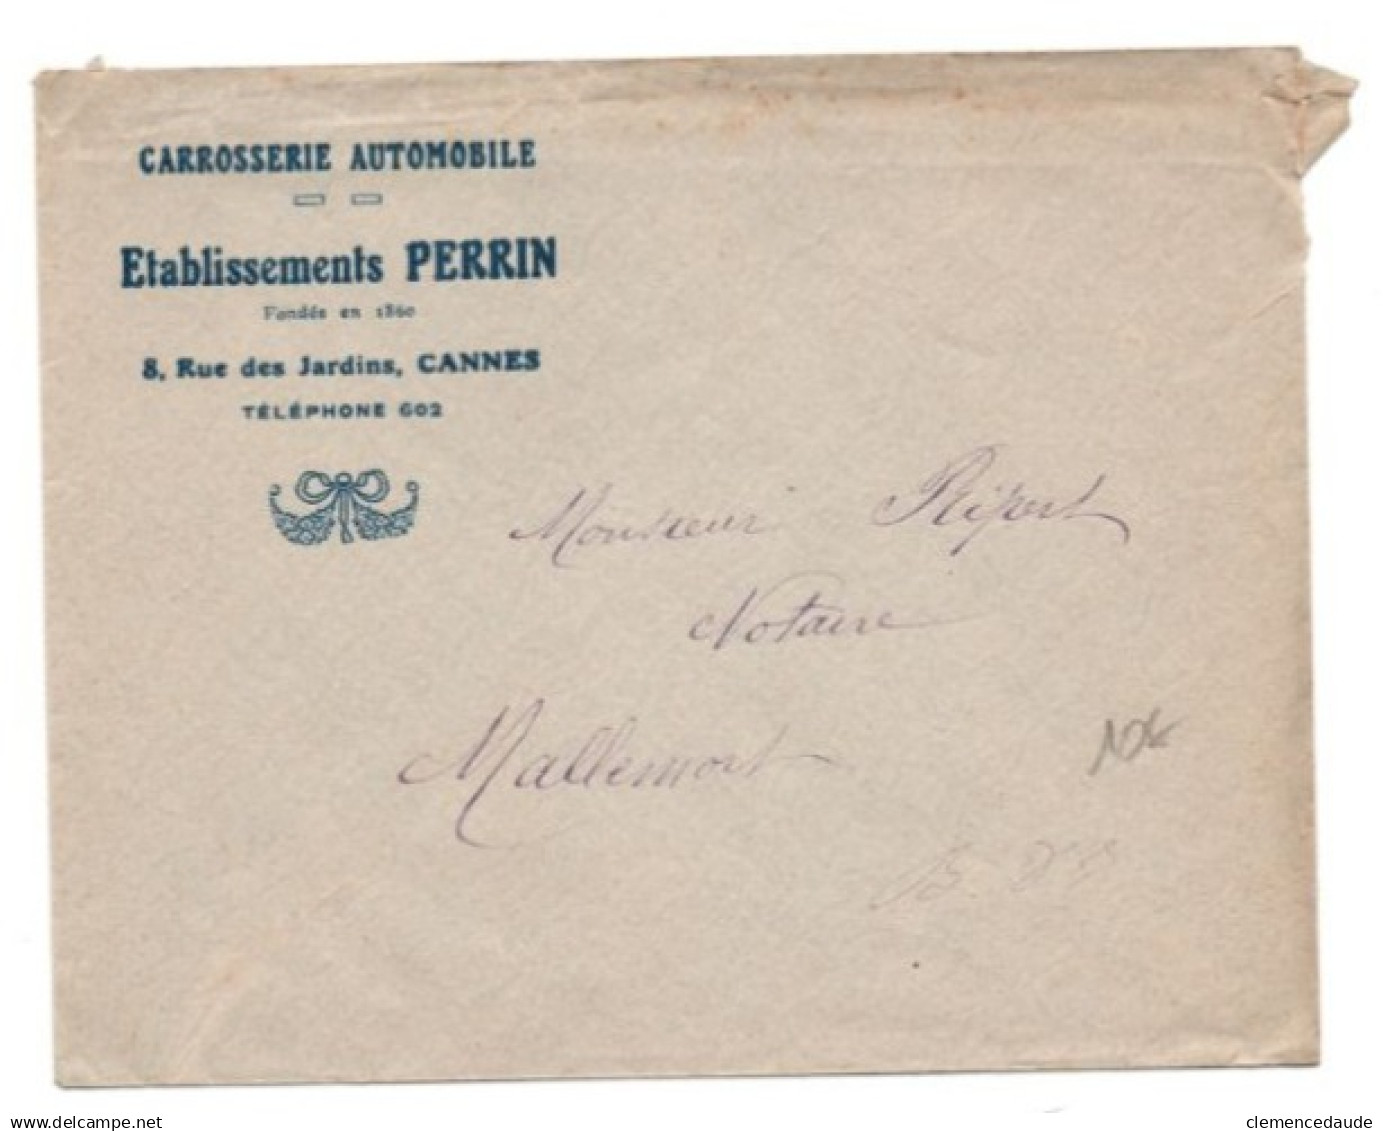 CARROSSERIE AUTOMOBILE
Etablissements PERRIN
Fondée en 1860
8, Rue des Jardins, CANNES
TÉLÉPHONE 602
Monsieur Ripert
Notaire
Mallemort
10€
B. d R
www.delcampe.net
clemencedaude